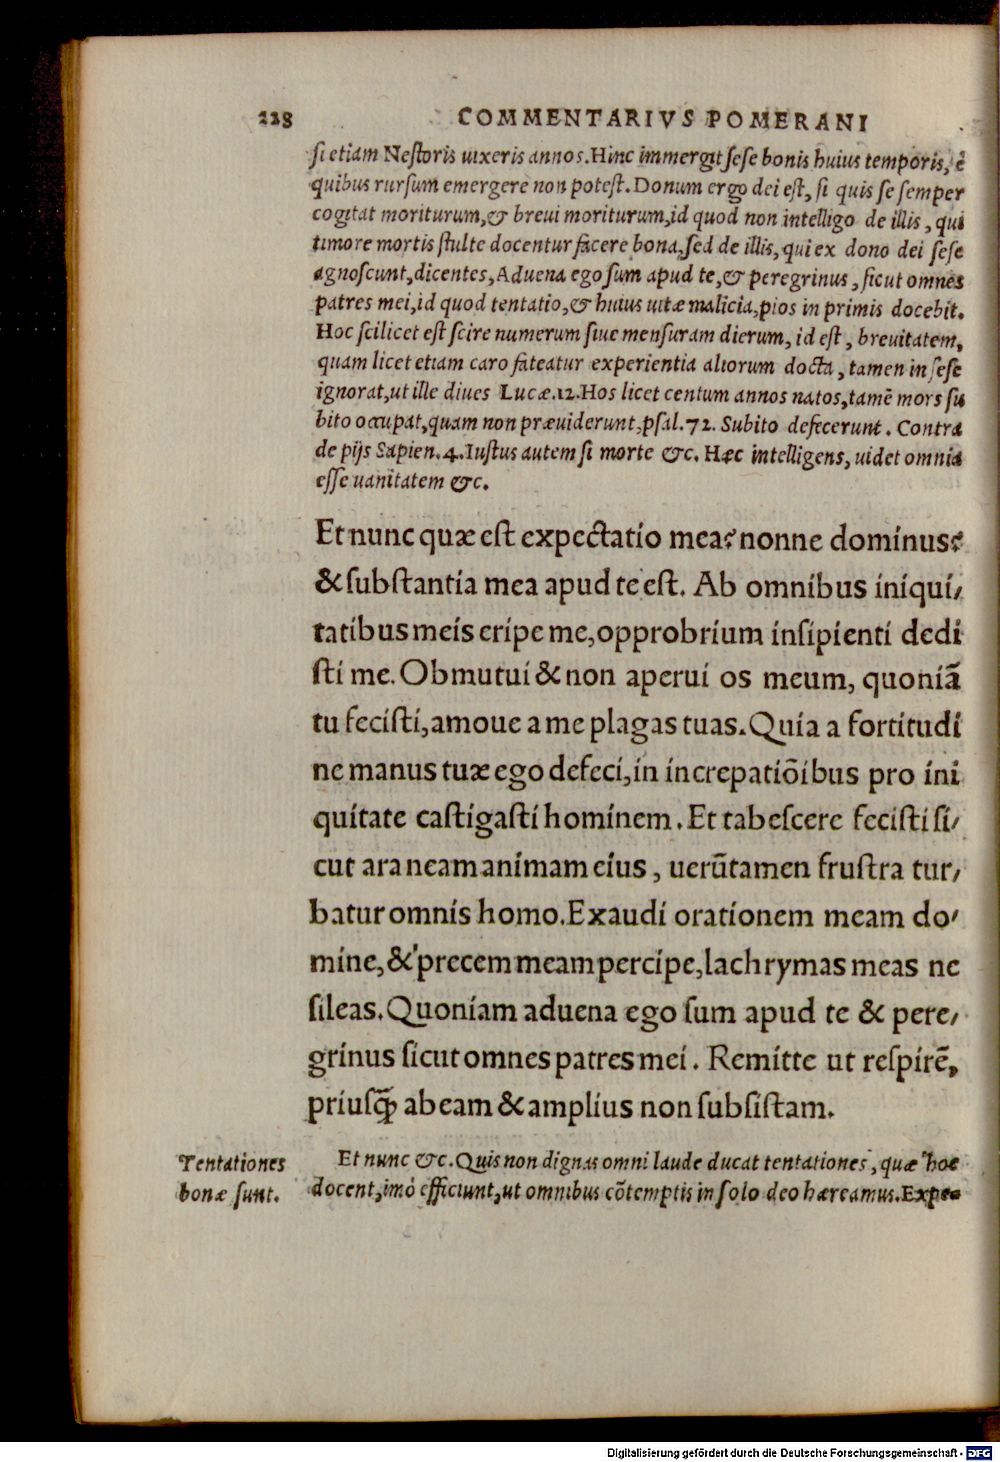 228 COMMENTARIVS POMERANI
ſi etiam Neſtoris uixeris annos. Hinc immergit ſeſe bonis huius temporis, ẽ
quibus rurſum emergere non poteſt. Donum ergo dei eſt, ſi quis ſe ſemper
cogitat moriturum, & breui moriturum, id quod non intelligo de illis, qui
timore mortis ſtulte docentur facere bona, ſed de illis, qui ex dono dei ſeſe
agnoſcunt, dicentes, Aduena ego ſum apud te, & peregrinus, ſicut omnes
patres mei, id quod tentatio, & huius uitæ malicia, pios in primis docebit.
Hoc ſcilicet eſt ſcire numerum ſiue menſuram dierum, id eſt, breuitatem,
quam licet etiam caro fateatur experientia aliorum docta, tamen in ſeſe
ignorat, ut ille diues Lucæ. 12. Hos licet centum annos natos, tamẽ mors ſu
bito occupat, quam non præuiderunt, pſal. 72. Subito defecerunt. Contra
de pijs Sapien. 4. Iuſtus autem ſi morte &c. Hæc intelligens, uidet omnia
eſſe uanitatem &c.
Et nunc quæ eſt expectatio mea? nonne dominus?
& ſubſtantia mea apud te eſt. Ab omnibus iniqui/
tatibus meis eripe me, opprobrium inſipienti dedi
ſti me. Obmutui & non aperui os meum, quoniã
tu feciſti, amoue a me plagas tuas. Quia a fortitudi
ne manus tuæ ego defeci, in increpatiõibus pro ini
quitate caſtigaſti hominem. Et tabeſcere feciſti ſi/
cut araneam animam eius, uerũtamen fruſtra tur/
batur omnis homo. Exaudi orationem meam do/
mine, & precem meam percipe, lachrymas meas ne
ſileas. Quoniam aduena ego ſum apud te & pere/
grinus ſicut omnes patres mei. Remitte ut reſpirẽ,
priuſꝙ̃ abeam & amplius non ſubſiſtam.
Tentationes
bonæ ſunt.
Et nunc &c. Quis non dignas omni laude ducat tentationes, quæ hoc
docent, imò efficiunt, ut omnibus cõtemptis in ſolo deo hæreamus. Expe-
Digitalisierung gefördert durch die Deutsche Forschungsgemeinschaft - DFG